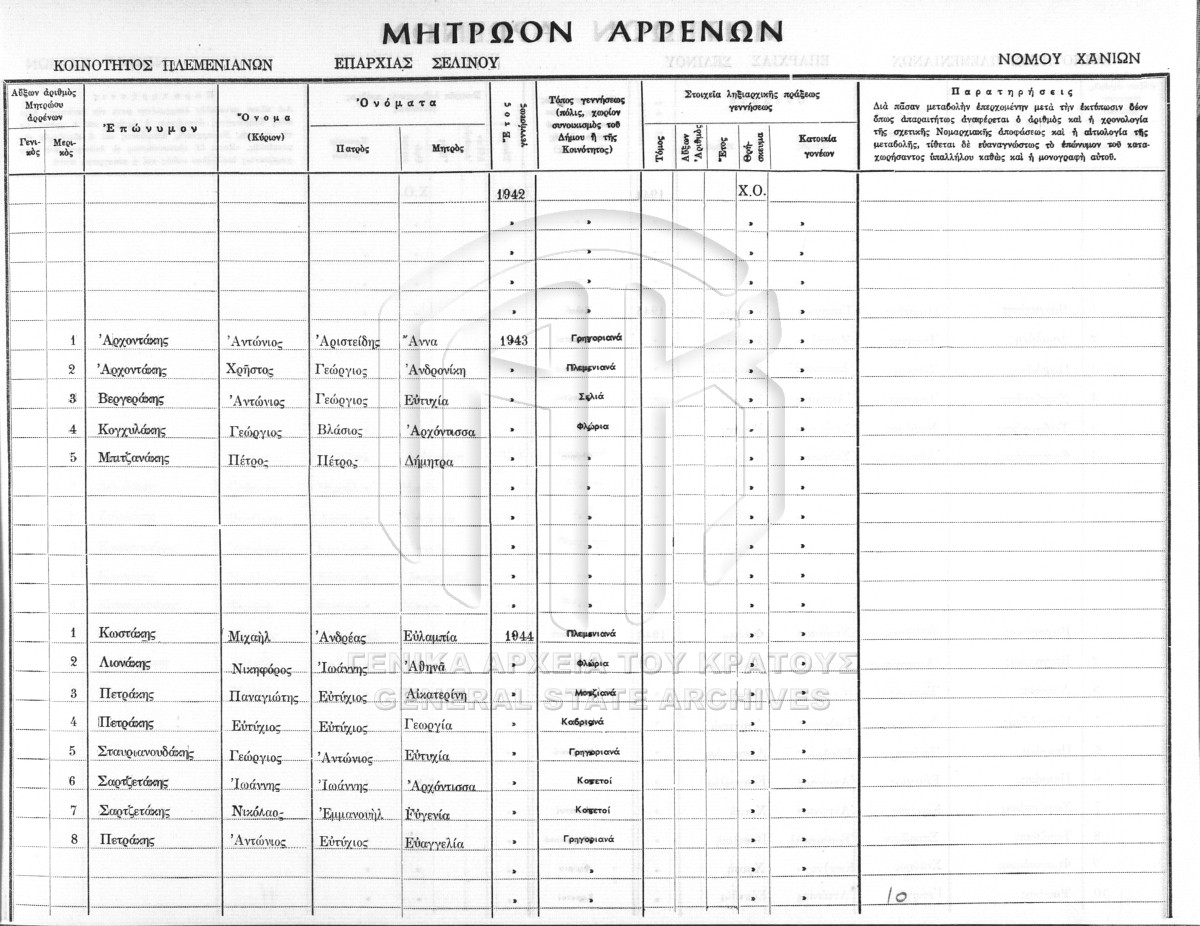 ΜΗΤΡΩΟΝ ΑΡΡΕΝΩΝ
ΚΟΙΝΟΤΗΤΟΣ ΠΛΕΜΕΝΙΑΝΩΝ ΕΠΑΡΧΙΑΣ ΣΕΛΙΝΟΥ ΝΟΜΟΥ ΧΑΝΙΩΝ
Αὔξων ἀριθμὸς Μητρώου ἀρρένων
Γενικὸς
Μερικὸς
Ἐπώνυμον
Ὄνομα (Κύριον)
Ὀνόματα
Πατρὸς
Μητρὸς
Ἔτος γεννήσεως
Τόπος γεννήσεως (πόλις, χωρίον συνοικισμὸς τοῦ Δήμου ἢ τῆς Κοινότητος)
Στοιχεῖα ληξιαρχικῆς πράξεως γεννήσεως
Τόμος
Αὔξων Ἀριθμὸς
Ἔτος
Θρήσκευμα
Κατοικία γονέων
Παρατηρήσεις
Διὰ πᾶσαν μεταβολὴν ἐπερχομένην μετὰ τὴν ἐκτύπωσιν δέον
ὅπως ἀπαραιτήτως ἀναφέρεται ὁ ἀριθμὸς καὶ ἡ χρονολογία
τῆς σχετικῆς Νομαρχιακῆς ἀποφάσεως καὶ ἡ αἰτιολογία τῆς
μεταβολῆς, τίθεται δὲ εὐαναγνώστως τὸ ἐπώνυμον τοῦ κατα-
χωρήσαντος ὑπαλλήλου καθὼς καὶ ἡ μονογραφὴ αὐτοῦ.
1942 Χ.Ο.
» » » »
» » » »
» » » »
» » » »
1 Ἀρχοντάκης Ἀντώνιος Ἀριστείδης Ἄννα 1943 Γρηγοριανά » »
2 Ἀρχοντάκης Χρῆστος Γεώργιος Ἀνδρονίκη » Πλεμενιανά » »
3 Βεργεράκης Ἀντώνιος Γεώργιος Εὐτυχία » Σελιά » »
4 Κογχυλάκης Γεώργιος Βλάσιος Ἀρχόντισσα » Φλώρια » »
5 Μπιτζανάκης Πέτρος Πέτρος Δήμητρα » » » »
» » » »
» » » »
» » » »
» » » »
» » » »
1 Κωστάκης Μιχαὴλ Ἀνδρέας Εὐλαμπία 1944 Πλεμενιανά » »
2 Λιονάκης Νικηφόρος Ἰωάννης Ἀθηνᾶ » Φλώρια » »
ΓΕΝΙΚΑ ΑΡΧΕΙΑ ΤΟΥ ΚΡΑΤΟΥΣ
3 Πετράκης Παναγιώτης Εὐτύχιος Αἰκατερίνη » Μουζιανά » »
GENERAL STATE ARCHIVES
4 Πετράκης Εὐτύχιος Εὐτύχιος Γεωργία » » »
5 Σταυριανουδάκης Γεώργιος Ἀντώνιος Εὐτυχία » Γρηγοριανά » »
6 Σαρτζετάκης Ἰωάννης Ἰωάννης Ἀρχόντισσα » » »
7 Σαρτζετάκης Νικόλαος Ἐμμανουὴλ Εὐγενία » » »
8 Πετράκης Ἀντώνιος Εὐτύχιος Εὐαγγελία » Γρηγοριανά » »
» » » »
» » » »
10